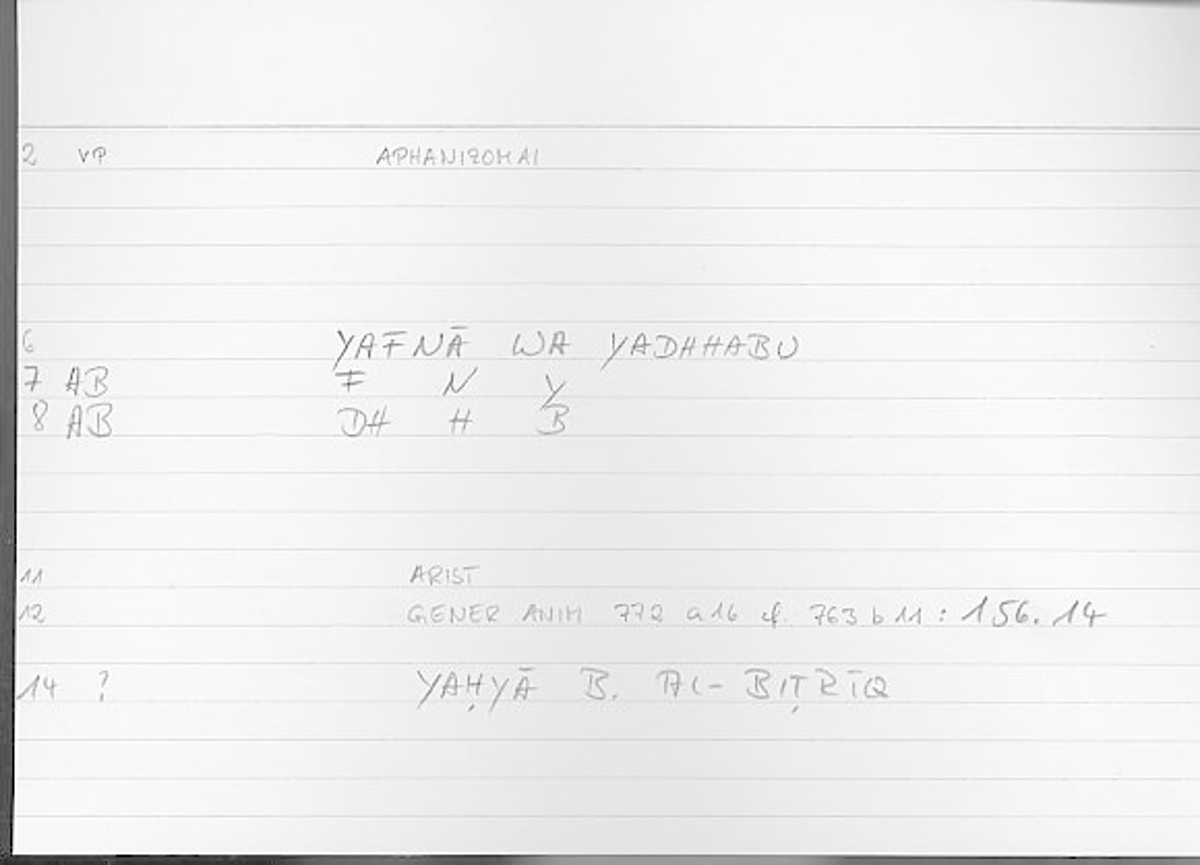 2 VP APHANIZOMAI
6 YAFNĀ WA YADHHABU
7 AB F N Y
8 AB DH H B
11 ARIST
12 GENER ANIM 772 a 16 cf. 763 b 11 : 156.14
14 ? YAḤYĀ B. AL-BIṬRĪQ